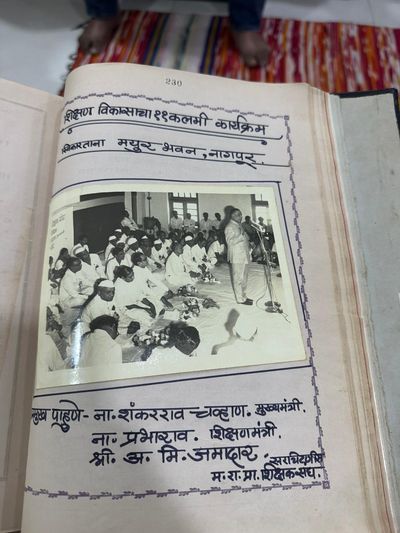 230
शिक्षण विकासाचा ११कलमी कार्यक्रम
स्विकारताना मयुर भवन, नागपुर.
प्रमुख पाहुणे - ना. शंकरराव चव्हाण. मुख्यमंत्री.
ना. प्रभाराव. शिक्षणमंत्री.
श्री. अ. मि. जमादार.
म. रा. प्रा. शिक्षक संघ.